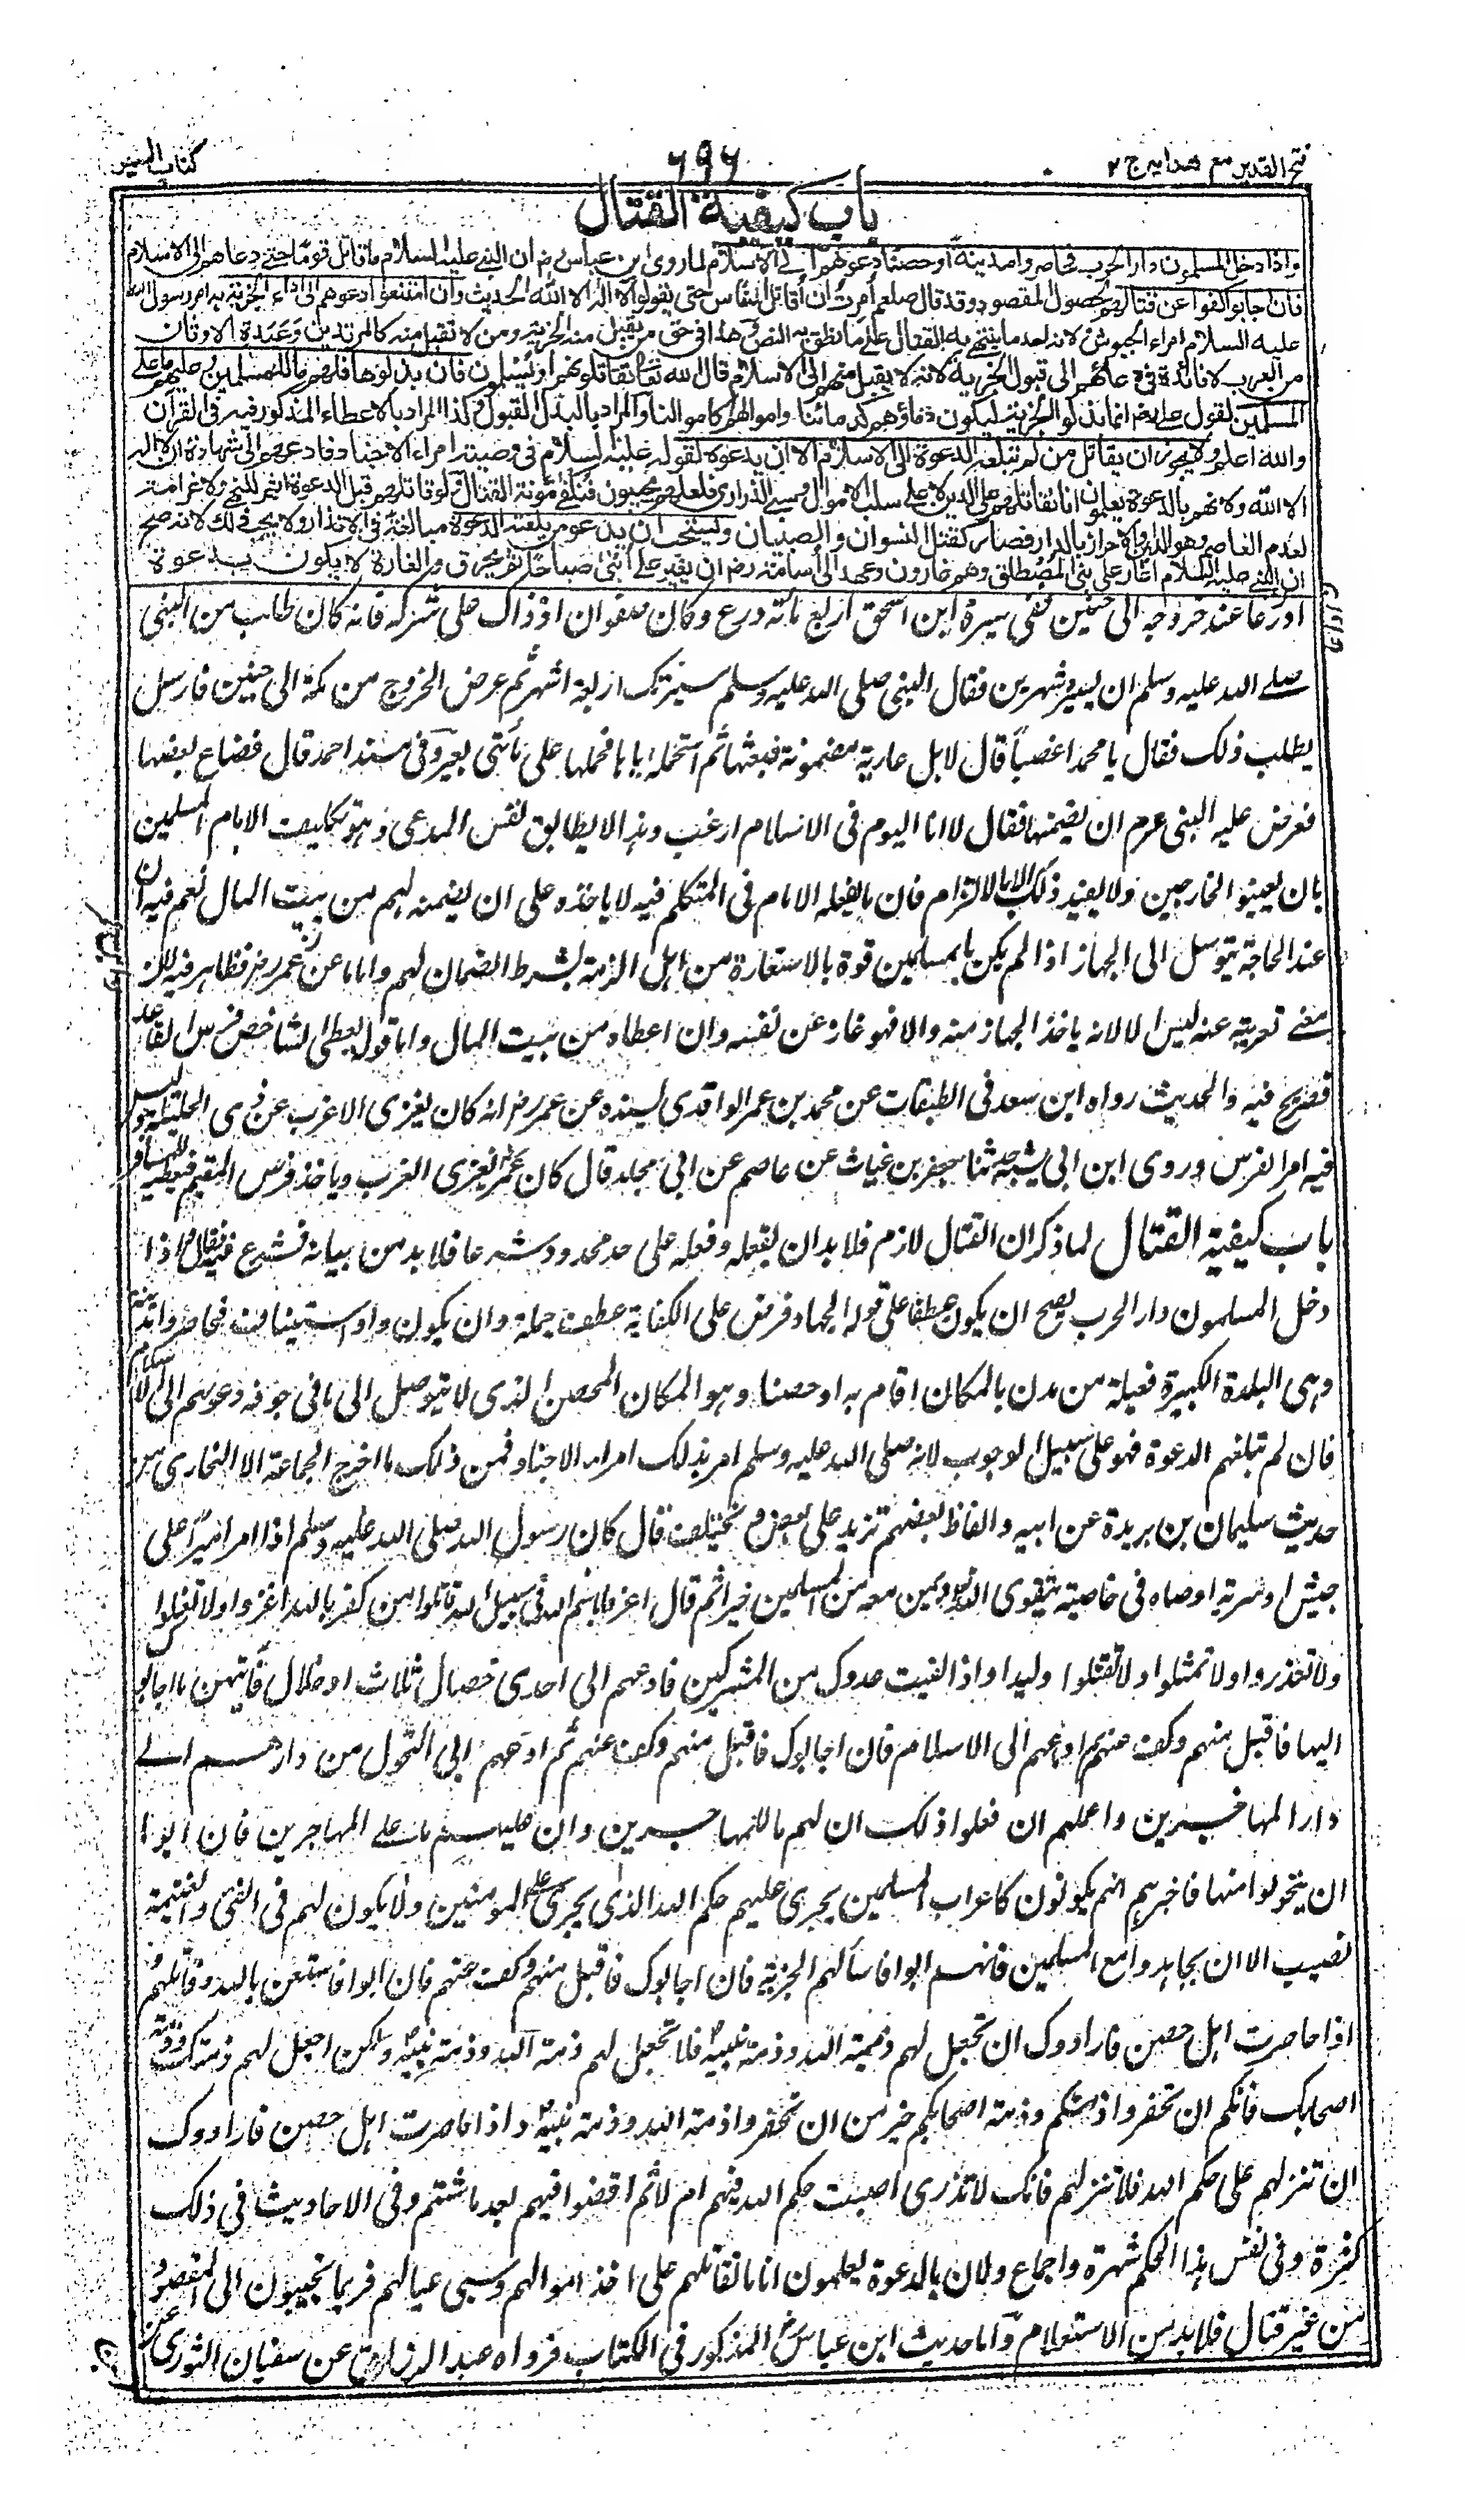 فتح القدير مع هدايه ج ٢
٦٩٦
كتاب السير
باب كيفية القتال
واذا دخل المسلمون دار الحرب فحاصروا مدينة او حصنا دعوهم الى الاسلام لما روى ابن عباس رض ان النبي عليه السلام ما قاتل قوما حتى دعاهم الى الاسلام
فان اجابوا كفوا عن قتالهم لحصول المقصود وقد قال صلعم امرت ان اقاتل الناس حتى يقولوا لا اله الا الله الحديث وان امتنعوا دعوهم الى اداء الجزية به امر رسول الله
عليه السلام امراء الجيوش لانه احد ما ينتهى به القتال على ما نطق به النص وهذا فى حق من يقبل منه الجزية ومن لا تقبل منه كالمرتدين وعبدة الاوثان
من العرب لا فائدة فى دعائهم الى قبول الجزية لانه لا يقبل منهم الا الاسلام قال الله تعالى تقاتلونهم او يسلمون فان بذلوها فلهم ما للمسلمين وعليهم ما على
المسلمين لقول على رض انما بذلوا الجزية ليكون دماؤهم كدمائنا واموالهم كاموالنا والمراد بالبذل القبول وكذا المراد بالاعطاء المذكور فيه فى القرآن
والله اعلم ولا يجوز ان يقاتل من لم تبلغه الدعوة الى الاسلام الا ان يدعوه لقوله عليه السلام فى وصيته امراء الاجناد فادعهم الى شهادة ان لا اله
الا الله ولانهم بالدعوة يعلمون انا نقاتلهم على الدين لا على سلب الاموال وسبى الذرارى فلعلهم يجيبون فنكفى مؤنة القتال ولو قاتلهم قبل الدعوة اثم للنهى ولا غرامة
لعدم العاصم وهو الدين او الاحراز بالدار فصار كقتل النسوان والصبيان ويستحب ان يدعو من بلغته الدعوة مبالغة فى الانذار ولا يجب ذلك لانه صح
ان النبى عليه السلام اغار على بنى المصطلق وهم غارون وعهد الى اسامة رض ان يغير على ابنى صباحا ثم يحرق والغارة لا يكون بدعوة
ادرعا عند خروجه الى حنين ففى سيرة ابن اسحق اربع مائة درع وكان صفوان اذ ذاك على شركه فانه كان طالب من النبى
صلے الله عليه وسلم ان يسيره شهرين فقال النبى صلى الله عليه وسلم سيرتك اربعة اشهر ثم عرض الخروج من مكة الى حنين فارسل
يطلب ذلك فقال يا محمد اغصبا قال لا بل عارية مضمونة فبعثها ثم استحمله اياها فحملها على مأتى بعير وفى مسند احمد قال فضاع بعضها
فعرض عليه النبى عرم ان يضمنها فقال لا انا اليوم فى الاسلام ارغب وهذا لا يطابق نفس المدعى وهو تكليف الامام المسلمين
بان يعينوا الخارجين ولا يفيد ذلك الا بالالتزام فان ما يفعله الامام فى المتكلم فيه لا ياخذه على ان يضمنه لهم من بيت المال نعم فيه ان
عند الحاجة يتوسل الى الجهاز اذا لم يكن بالمسلمين قوة بالاستعارة من اهل الذمة بشرط الضمان لهم واما عن عمر رض فظاهر فيه لان
معنے تعريته عنه ليس الا لانه ياخذ الجهاز منه والا فهو غاز عن نفسه وان اعطاه من بيت المال واما قوله يعطى الشاخص فرس القاعد
فصريح فيه والحديث رواه ابن سعد فى الطبقات عن محمد بن عمر الواقدى بسنده عن عمر رض انه كان يغزى الاعزب عن ذى الحليلة وليس
فيه امر الفرس وروى ابن ابى شيبة حدثنا حفص بن غياث عن عاصم عن ابى مجلد قال كان عمر يغزى العزب وياخذ فرس المقيم فيعطيه المسافر
باب كيفية القتال لما ذكر ان القتال لازم فلا بد ان يفعله وفعله على حد محدود شرعا فلا بد من بيانه فشرع فيه فقال اذا
دخل المسلمون دار الحرب يصح ان يكون عطفا على قوله الجهاد فرض على الكفاية عطف جملة وان يكون واو استيناف فحاصروا مدينة
وهى البلدة الكبيرة فعيلة من مدن بالمكان اقام به او حصنا وهو المكان المحصن الذى لا يتوصل الى ما فى جوفه دعوهم الى الاسلام
فان لم تبلغهم الدعوة فهو على سبيل الوجوب لانه صلى الله عليه وسلم امر بذلك امراء الاجناد فمن ذلك ما اخرج الجماعة الا البخارى من
حديث سليمان بن بريدة عن ابيه والفاظ بعضهم تزيد على بعض و تختلف قال كان رسول الله صلى الله عليه وسلم اذا امر اميرا على
جيش او سرية اوصاه فى خاصته بتقوى الله وبمن معه من المسلمين خيرا ثم قال اغزوا باسم الله فى سبيل الله قاتلوا من كفر بالله اغزوا ولا تغلوا
ولا تغدروا ولا تمثلوا ولا تقتلوا وليدا واذا لقيت عدوك من المشركين فادعهم الى احدى خصال ثلاث او خلال فأيتهن ما اجابوك
اليها فاقبل منهم وكف عنهم ادعهم الى الاسلام فان اجابوك فاقبل منهم وكف عنهم ثم ادعهم الى التحول من دارهم الے
دار المهاجرين واعلمهم ان فعلوا ذلك ان لهم ما للمهاجرين وان عليهم ما على المهاجرين فان ابوا
ان يتحولوا منها فاخبرهم انهم يكونون كاعراب المسلمين يجرى عليهم حكم الله الذى يجرى على المومنين ولا يكون لهم فى الفئ والغنيمة
نصيب الا ان يجاهدوا مع المسلمين فانهم ابوا فاسألهم الجزية فان اجابوك فاقبل منهم وكف عنهم فان ابوا فاستعن بالله وقاتلهم و
اذا حاصرت اهل حصن فارادوك ان تجعل لهم ذمة الله وذمة نبيه فلا تجعل لهم ذمة الله وذمة نبيه ولكن اجعل لهم ذمتك وذمة
اصحابك فانكم ان تخفروا ذمتكم وذمة اصحابكم خير من ان تخفروا ذمة الله وذمة نبيه واذا حاصرت اهل حصن فارادوك
ان تنزلهم على حكم الله فلا تنزلهم فانك لا تدرى اصبت حكم الله فيهم ام لا ثم اقضوا فيهم بعد ما شئتم وفى الاحاديث فى ذلك
كثرة وفى نفس هذا الحكم شهرة واجماع ولان بالدعوة يعلمون انا ما نقاتلهم على اخذ اموالهم وسبى عيالهم فربما يجيبون الى المقصود
من غير قتال فلا بد من الاستعلام واما حديث ابن عباس رض المذكور فى الكتاب فرواه عبد الرزاق عن سفيان الثورى عن